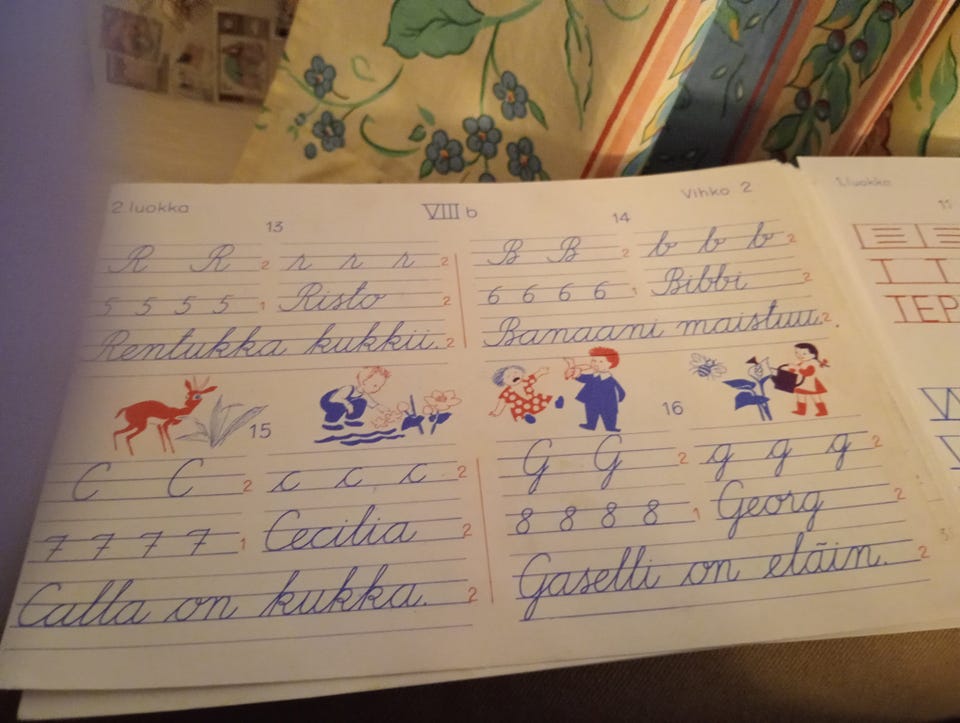 2.luokka VIII b Vihko 2
13
R R 2 r r r 2
5 5 5 5 1 Risto 2
Rentukka kukkii. 2
14
B B 2 b b b 2
6 6 6 6 1 Bibbi 2
Banaani maistuu. 2
15
C C 2 c c c 2
7 7 7 7 1 Cecilia 2
Calla on kukka. 2
16
G G 2 g g g 2
8 8 8 8 1 Georg 2
Gaselli on eläin. 2
1.luokka
11
I I